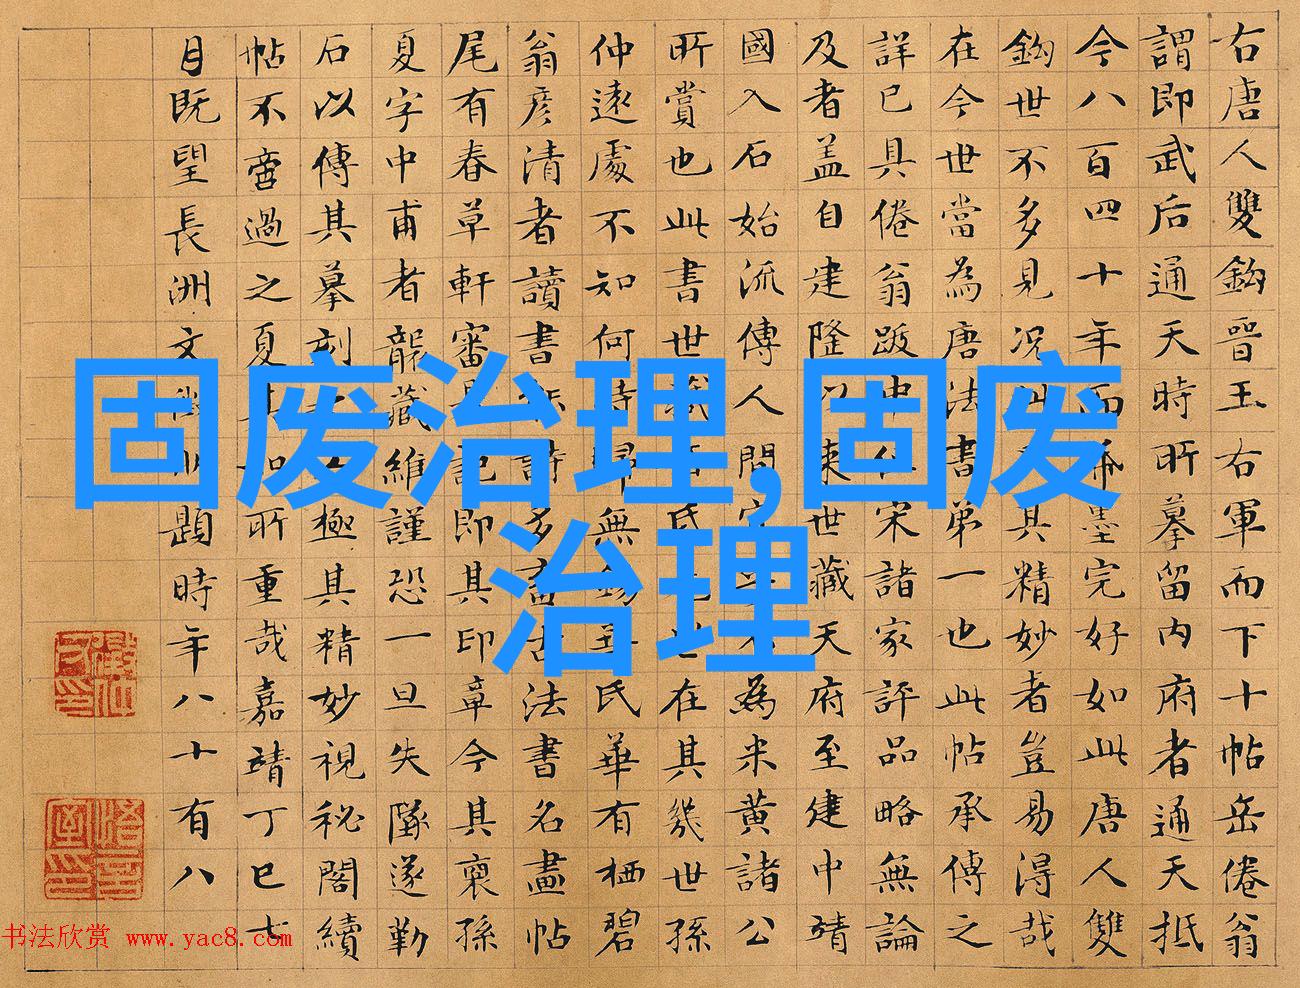 右唐人雙鈎晉王右軍而下十帖岳倦翁
謂即武后通天時所摹留內府者通天抵
今八百四十年而墨完好如此唐人雙
鈎世不多見况其精妙者豈易得哉
在今世當為唐法書第一也此帖承傳之
詳已具倦翁跋中宋諸家評品略無論
及者盖自建隆以來世藏天府至建中靖
國入石始流傳人間為米黃諸公
所賞也此書世藏氏世在其幾世孫
仲遠處不知何時歸無錫氏華有栖碧
翁彥清者讀書詩多畜古法書名畫帖
尾有春草軒審記即其印章今其裔孫
夏字中甫者襲藏維謹恐一旦失墜遂勤
石以傳其摹刻極其精妙視秘閣續
帖不啻過之夏其知所重哉嘉靖丁巳七
月既望長洲文題時年八十有八
固废治理,固废
治理
书法欣赏 www.yac8.com